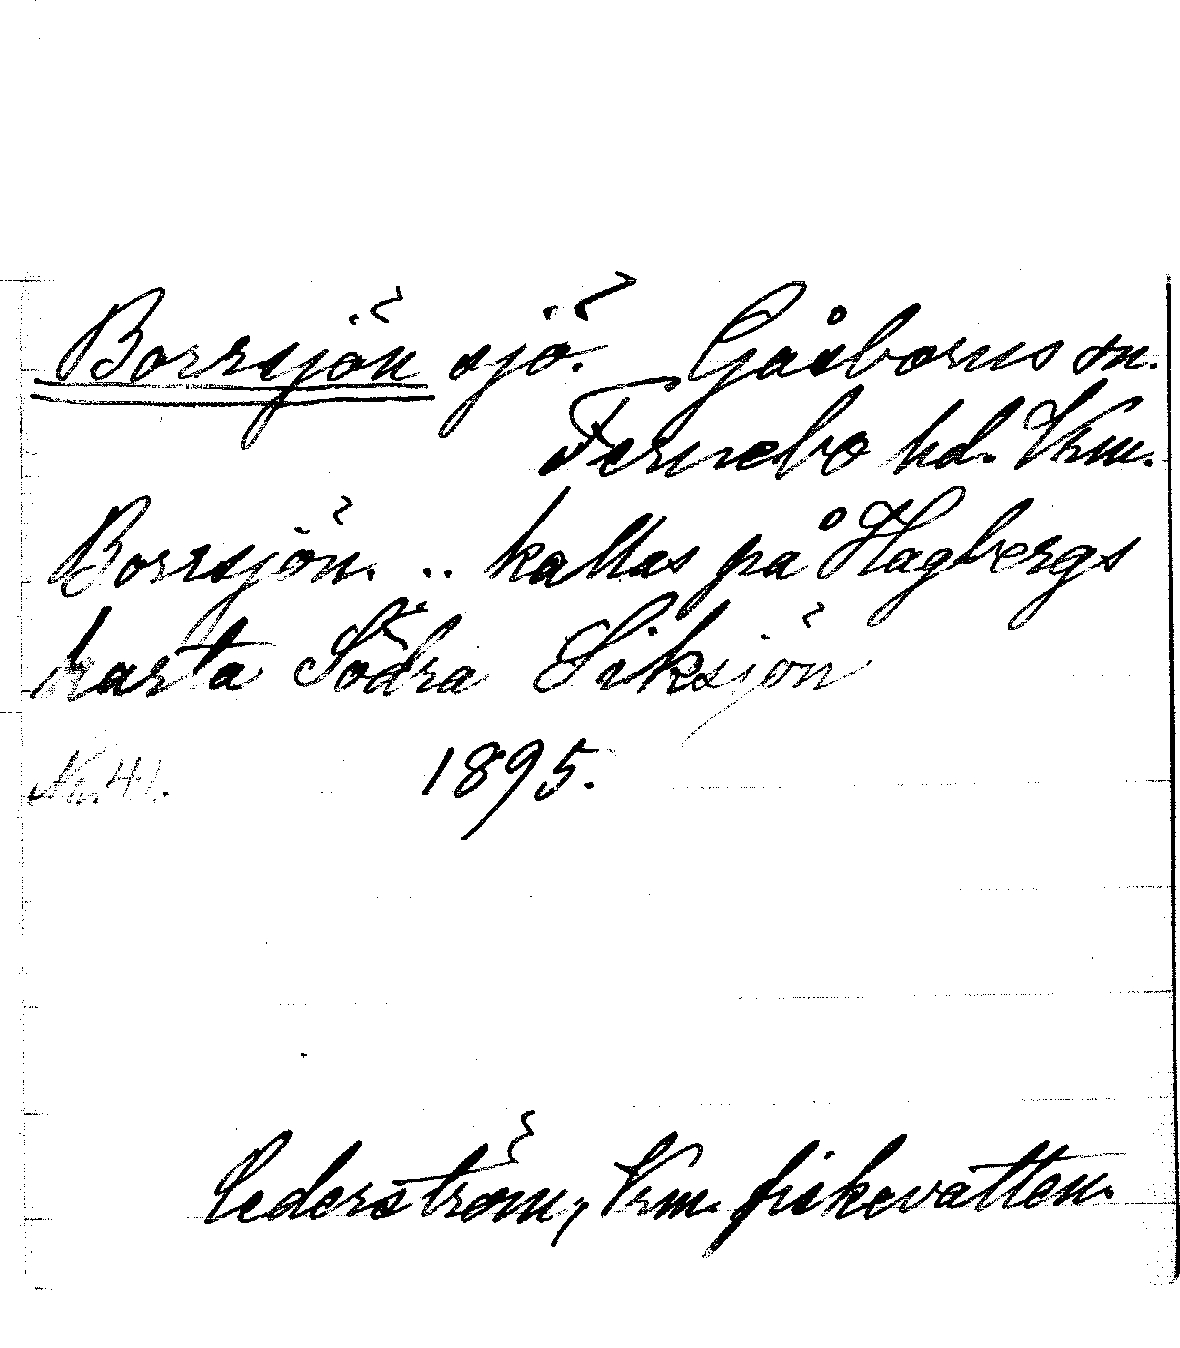 Borrsjön sjö. Gåsborns sn.
Fernebo hd. Vrm.
Borrsjön. .. kallas på Hagbergs
karta Södra Siksjön
No. 41. 1895.
Cederström, Vrm. fiskevatten.